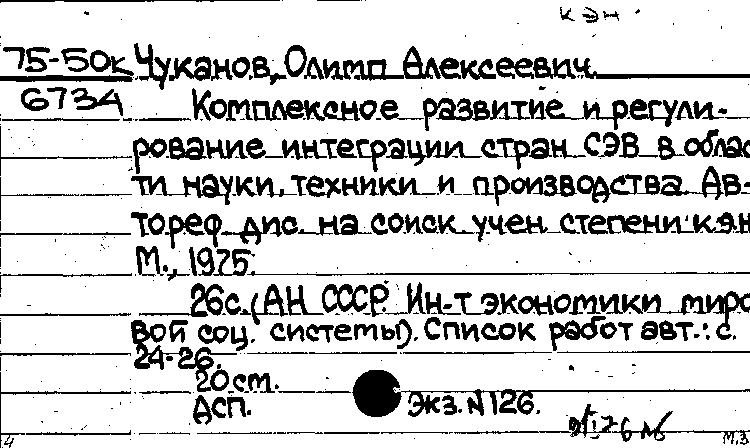 кэн
75-50к Чуканов, Олимп Алексеевич.
6734 Комплексное развитие и регули-
рование интеграции стран СЭВ в облас
ти науки, техники и производства. Ав-
тореф. дис. на соиск. учен. степени к.э.н
М., 1975.
26с. (АН СССР. Ин-т экономики миро
вой соц. системы). Список работ авт.: с.
24-26.
20 см.
ДСП. Экз. N 126.
4 М.З